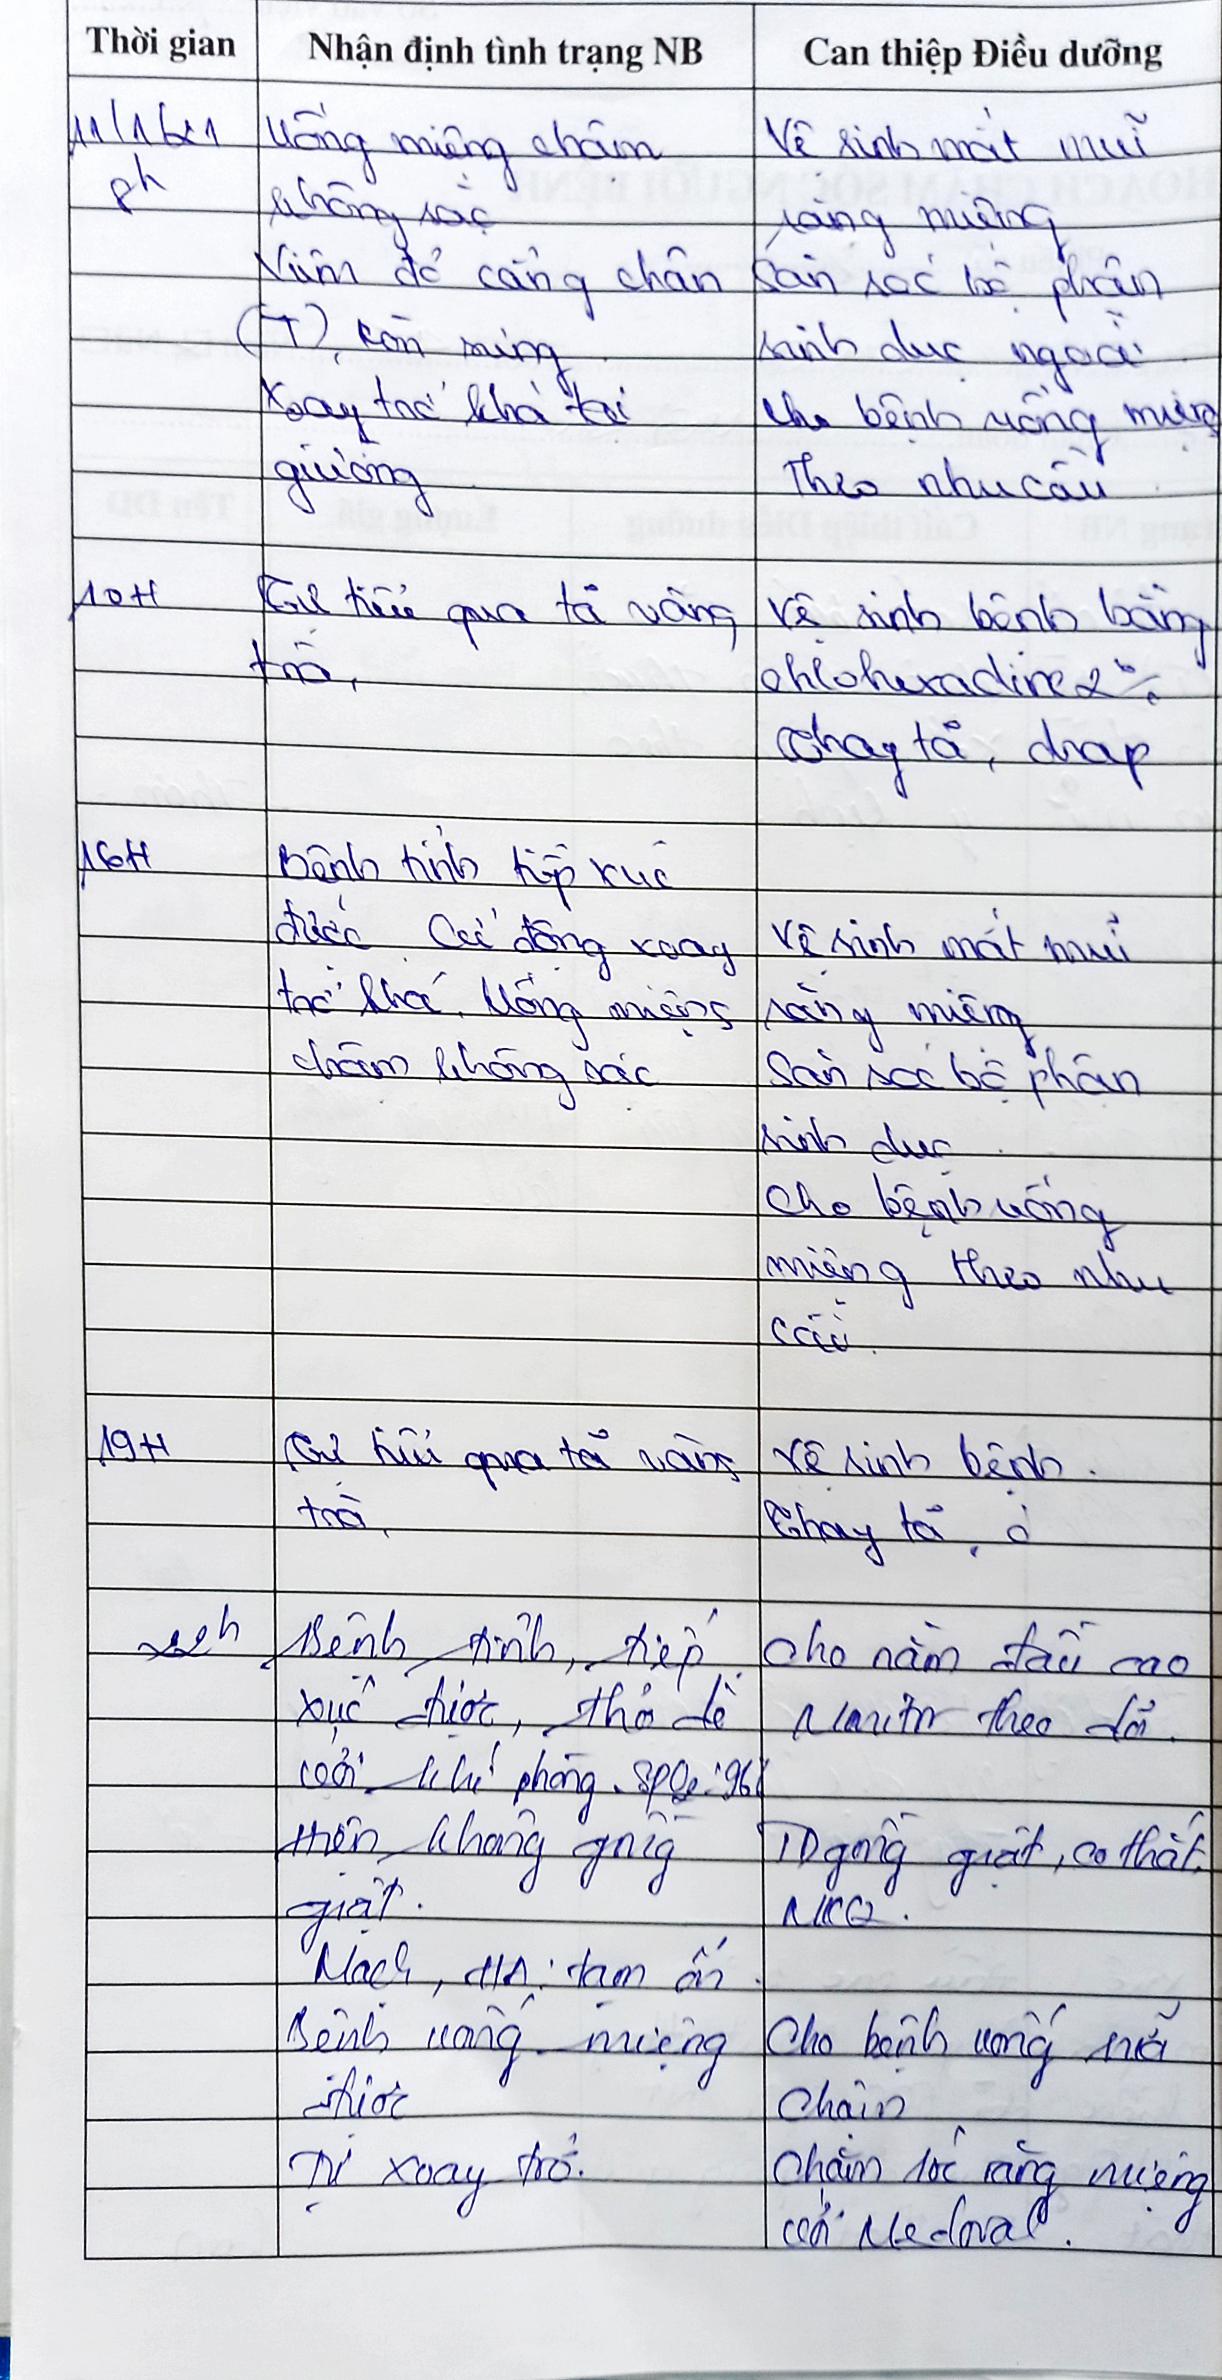 Thời gian
Nhận định tình trạng NB
Can thiệp Điều dưỡng
8h
Uống miệng chậm
không sặc
Viêm đỏ cẳng chân
(T), còn sưng
Xoay trở khá tại
giường
Vệ sinh mắt mũi
răng miệng
Săn sóc bộ phận
sinh dục ngoài
cho bệnh uống miệng
Theo nhu cầu
10H
tiểu qua tã vàng
trà,
Vệ sinh bệnh bằng
chlohexadine 2%
thay tã, drap
16H
Bệnh tỉnh tiếp xúc
được Cử động xoay
trở khá. Uống miệng
chậm không sặc
Vệ sinh mắt mũi
răng miệng
Săn sóc bộ phận
sinh dục
Cho bệnh uống
miệng theo nhu
cầu.
19H
tiểu qua tã vàng
trà,
Vệ sinh bệnh.
Thay tã,
Bệnh tỉnh, tiếp
xúc được, thở dễ
với khí phòng. SpO2: 96%
Hiện không gồng
giật.
Mạch, HA: tạm ổn.
Bệnh uống miệng
được
Tự xoay trở.
Cho nằm đầu cao
Monitor theo dõi.
TD gồng giật, co thắt
NKQ.
Cho bệnh uống sữa
Chậm
Chăm sóc răng miệng
với Medoral.